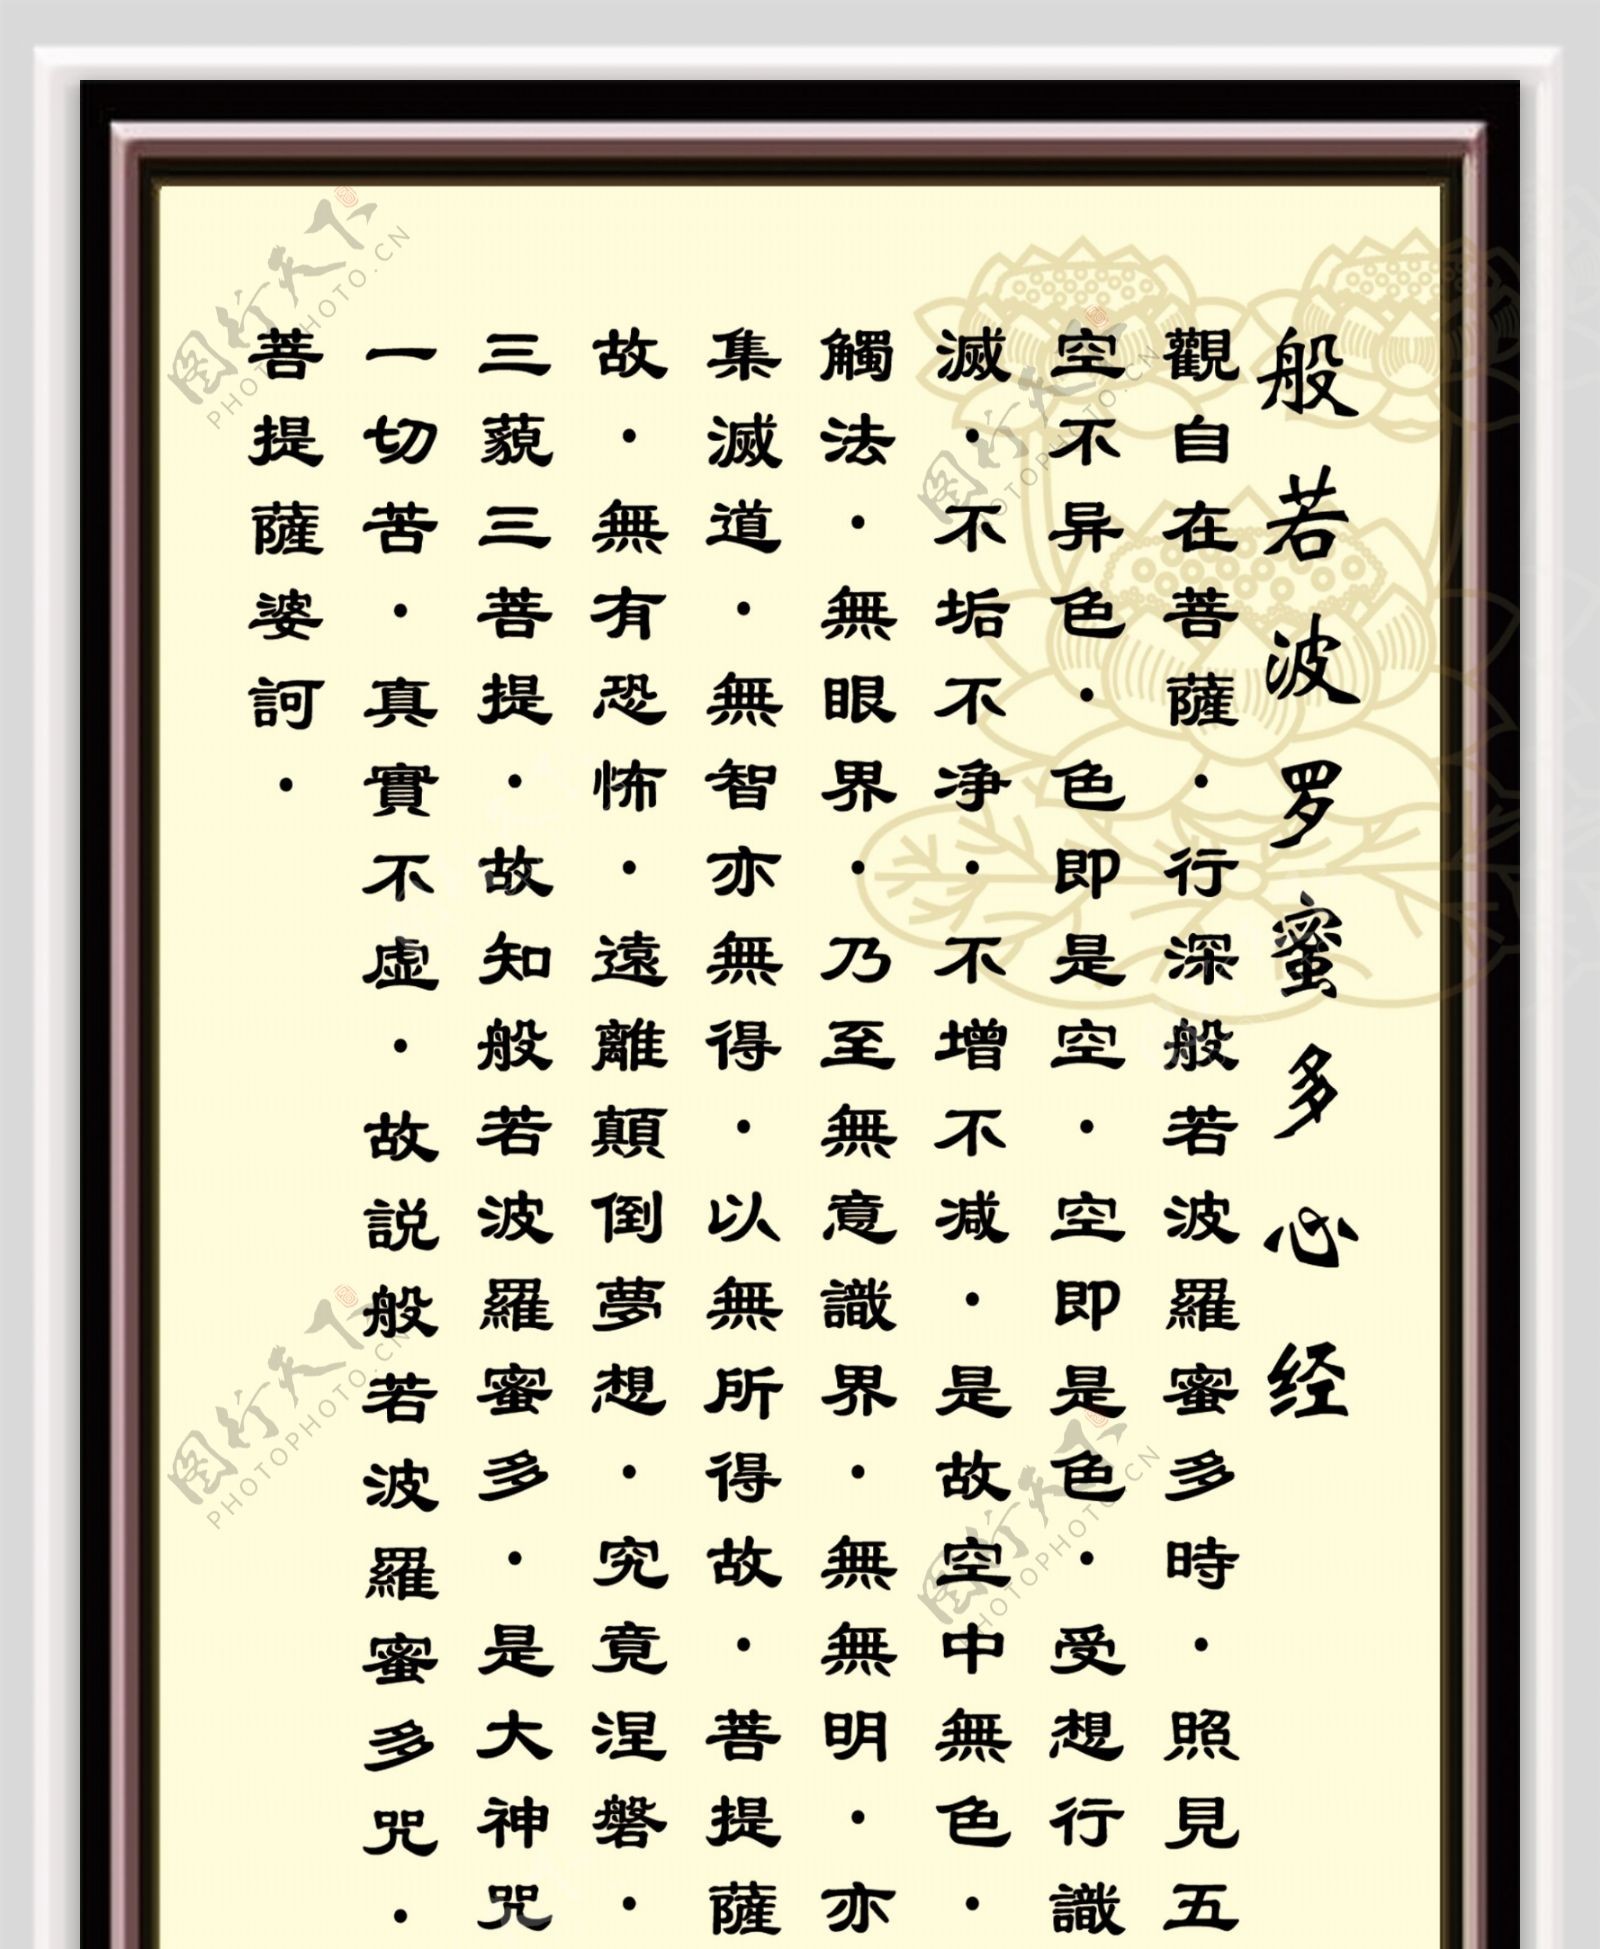 般若波罗蜜多心经
觀自在菩薩·行深般若波羅蜜多時·照見五
空不异色·色即是空·空即是色·受想行識
滅·不垢不净·不增不减·是故空中無色·
觸法·無眼界·乃至無意識界·無無明·亦
集滅道·無智亦無得·以無所得故·菩提薩
故·無有恐怖·遠離顛倒夢想·究竟涅磐·
三藐三菩提·故知般若波羅蜜多·是大神咒
一切苦·真實不虚·故説般若波羅蜜多咒·
菩提薩婆訶·
图行天下
PHOTOPHOTO.CN
图行天下
PHOTOPHOTO.CN
图行天下
PHOTOPHOTO.CN
图行天下
PHOTOPHOTO.CN